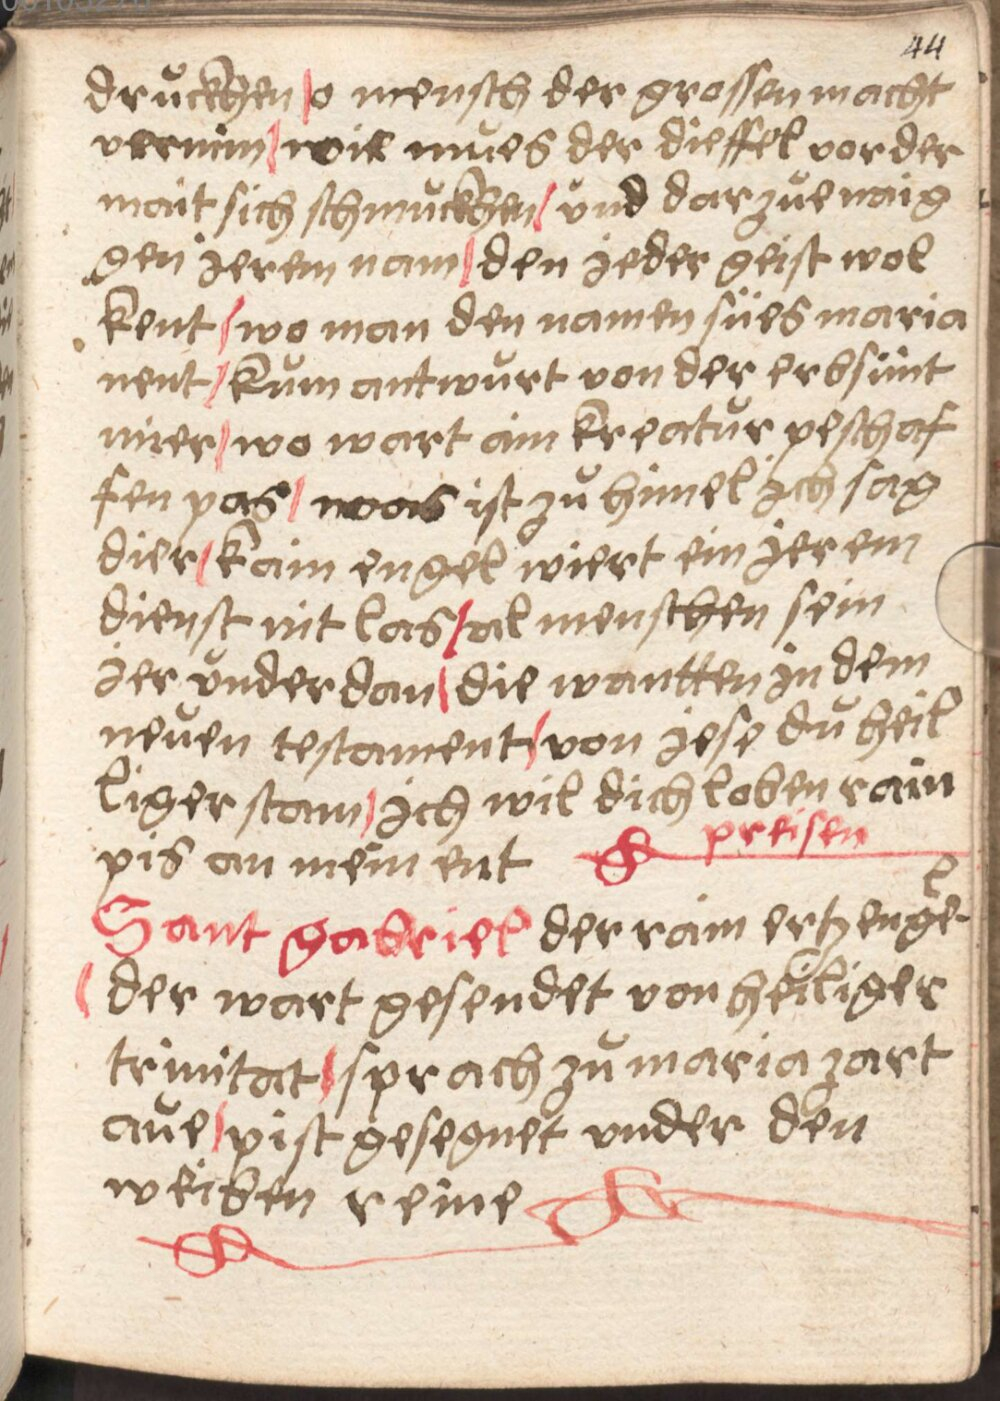 44
drúckhen / o mensch der grossen macht
vernim / wie mues der dieffel vor der
mait sich schmúckhen / únd dar zúe naig
gen ierem nam / den ieder geist wol
kent / wo man den namen sües maria
nent / kúm antwúrt von der erbsünt
mier / wo wart ain kreatúr peschaf
fen pas / was ist zú himel ich sag
dier / kain engel wiert ein ierem
dienst nit las / al menschen sein
ier únder dan / die wantten in dem
neúen testament / von iese dú heil
liger stam / ich wil dich loben rain
pis an mein ent preisen
Sant gabriel der rain ertzengel
/ der wart gesendet von heiliger
trinitat / sprach zú maria zart
aúe / pist gesegnet vnder den
weiben reine